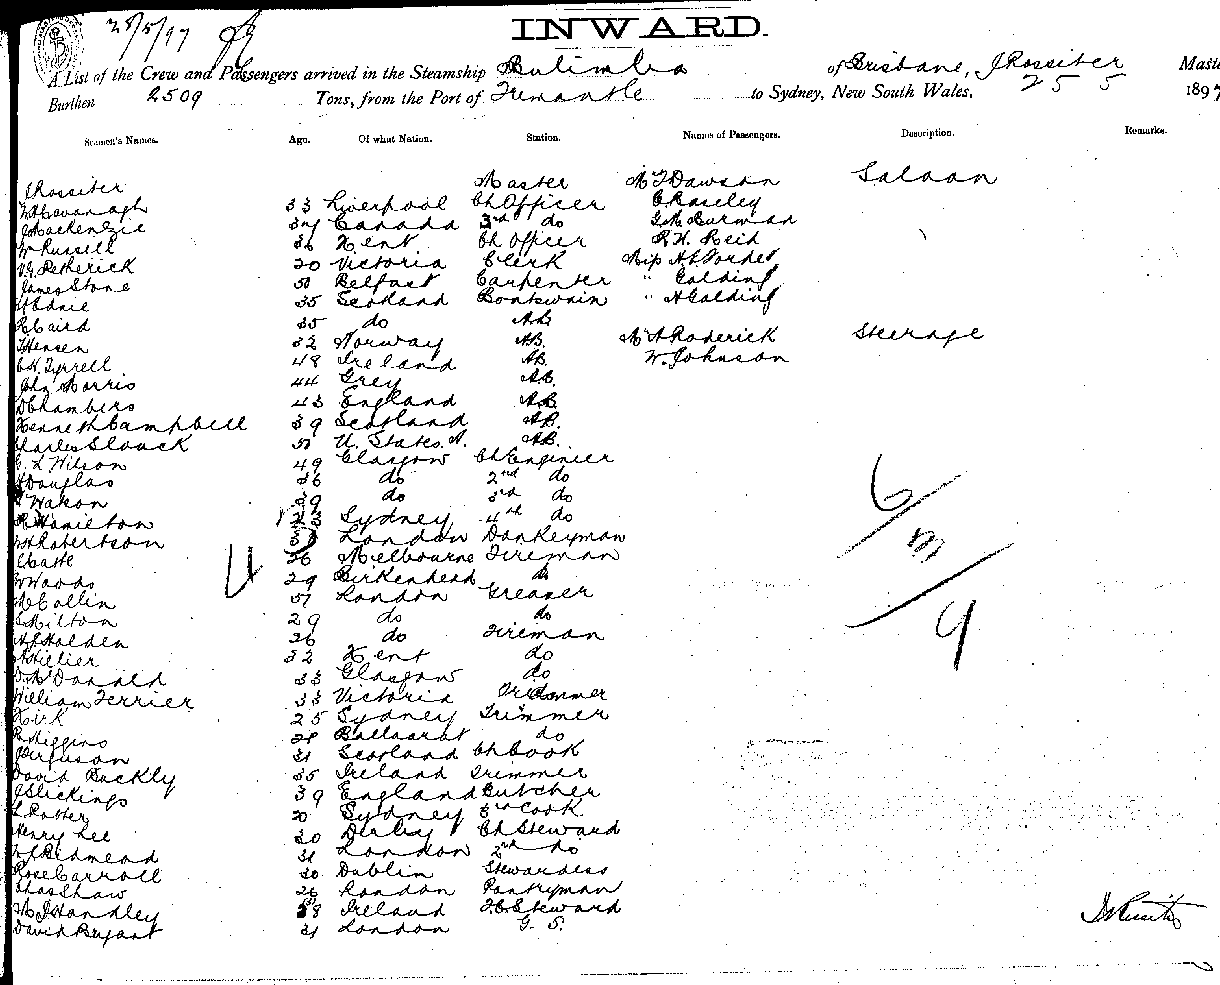 25/5/97
INWARD.
A List of the Crew and Passengers arrived in the Steamship Bulimba of Brisbane, J Rossiter Maste
Burthen 2509 Tons, from the Port of Fremantle to Sydney, New South Wales, 25 5 1897
Seamen's Names. Age. Of what Nation. Station. Names of Passengers. Description. Remarks.
J Rossiter Master Mr T Dawson Saloon
Cavanagh 33 Liverpool Ch Officer C Raseley
J Mackenzie Canada 3rd do Burman
W Russell 36 Kent Ch Officer R. H. Reid
Petherick 20 Victoria Clerk Miss
James Stone 50 Belfast Carpenter " Golding
Ednie 35 Scotland Boatswain " A Golding
R Caird 35 do AB
J Hensen 32 Norway AB. Mr A Roderick Steerage
C. H. Tyrrell 48 Ireland AB W. Johnson
John Morris 44 Grey AB.
D Chambers 43 England AB.
Kenneth Campbell 39 Scotland AB.
Charles Slouck 50 U. States. A. AB.
C. L Wilson 49 Glasgow Ch Enginier
Douglas 36 do 2nd do
Wakon 39 do 3rd do
R Hamilton Sydney 4th do
Robertson London Donkeyman
36 Melbourne Fireman
W Woods 29 Birkenhead do
McCallin 57 London Greaser
Milton 29 do do
Holden 26 do Fireman
Hillier 32 Kent do
D. McDonald 33 Glasgow do
William Ferrier 33 Victoria Trimmer
Kirk 25 Sydney Trimmer
R Higgins 28 Ballaarat do
J Ferguson 31 Scotland Ch Cook
David Buckly 35 Ireland Trimmer
J Slickings 39 England Butcher
Potter 20 Sydney 3rd Cook
Henry Lee 30 Derby Ch Steward
W J Redmead 31 London 2nd do
Rose Carroll 30 Dublin Stewardess
Chas Shaw 26 London Pantryman
M J Handley 28 Ireland F.C. Steward
David Bryant 31 London G. S.
6/m/9
J Rossiter